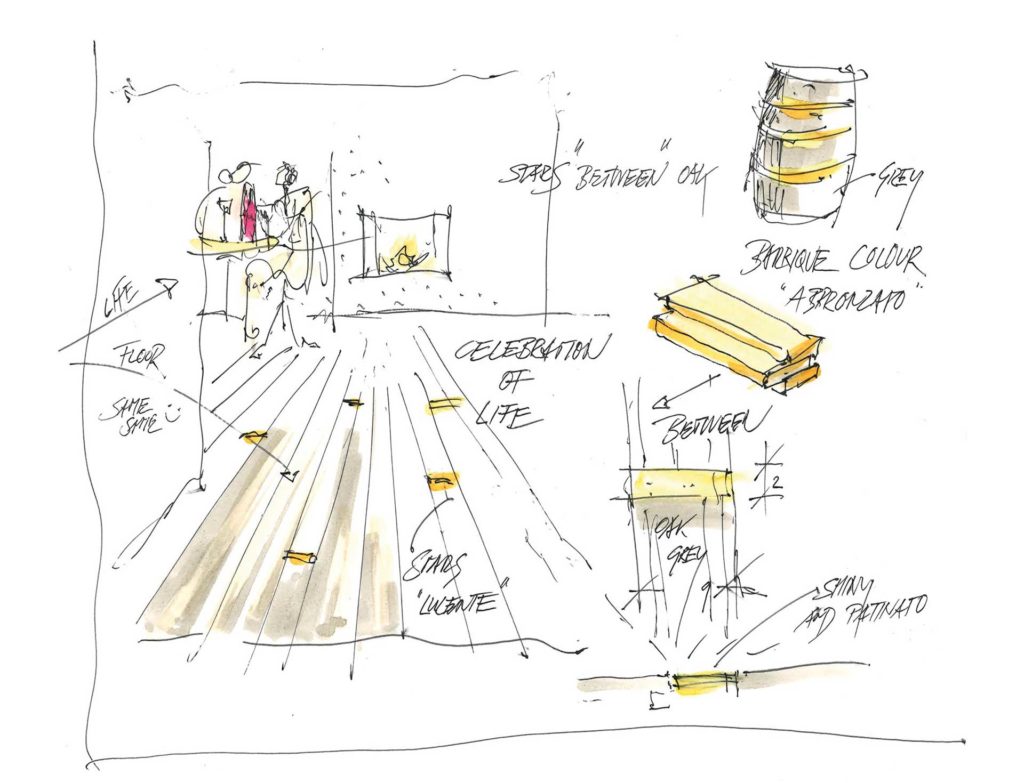 STARS "BETWEEN" OAK
GREY
BARRIQUE COLOUR
"ABBRONZATO"
LIFE
FLOOR
SAME
SAME
CELEBRATION
OF
LIFE
BETWEEN
2
OAK
GREY
9
STARS
"LUCENTE"
SHINY
AND PATINATO